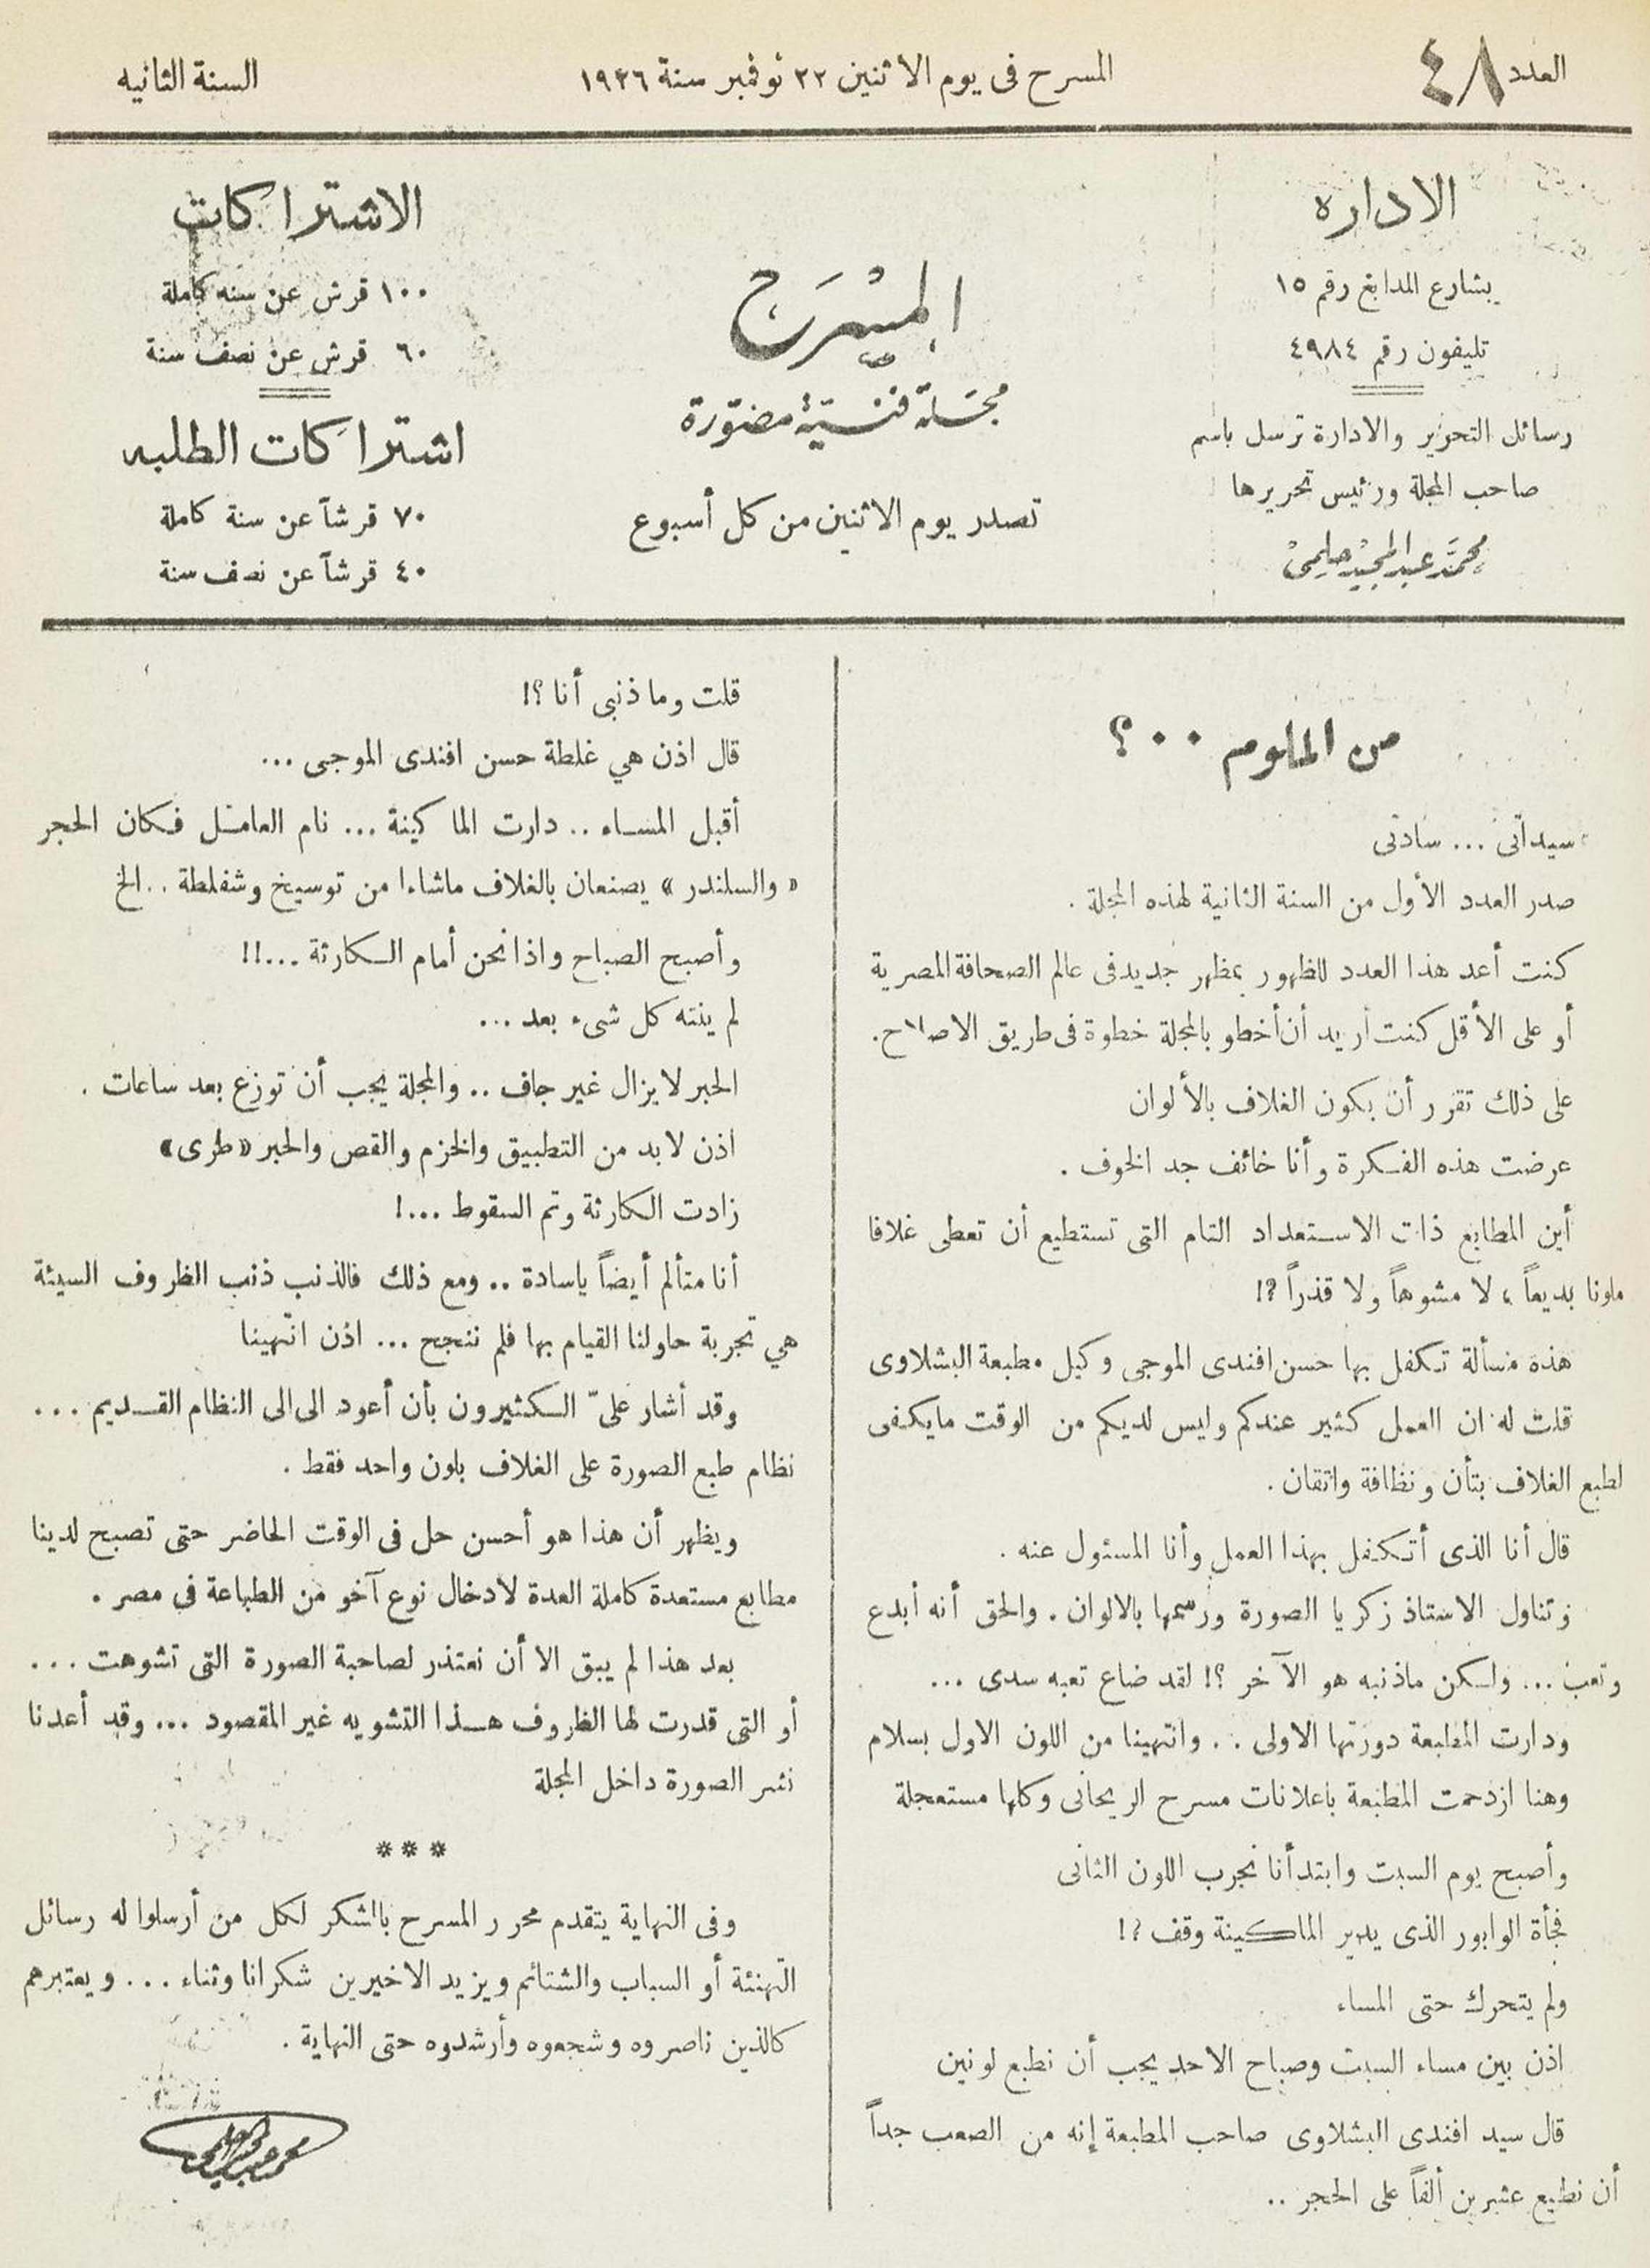 العدد ٤٨
المسرح فى يوم الاثنين ٢٢ نوفمبر سنة ١٩٢٦
السنة الثانيه
الاداره
بشارع المدابغ رقم ١٥
تليفون رقم ٤٩٨٤
رسائل التحرير والادارة ترسل باسم
صاحب المجلة ورئيس تحريرها
محمد عبد المجيد حلمى
المسرح
مجلة فنية مصورة
تصدر يوم الاثنين من كل أسبوع
الاشتراكات
١٠٠ قرش عن سنه كاملة
٦٠ قرش عن نصف سنة
اشتراكات الطلبه
٧٠ قرشاً عن سنة كاملة
٤٠ قرشاً عن نصف سنة
من الملوم ٠٠؟
سيداتى ... سادتى
صدر العدد الأول من السنة الثانية لهذه المجلة .
كنت أعد هذا العدد للظهور بمظهر جديد فى عالم الصحافة المصرية
أو على الأقل كنت أريد أن أخطو بالمجلة خطوة فى طريق الاصلاح.
على ذلك تقرر أن يكون الغلاف بالألوان
عرضت هذه الفكرة وأنا خائف جد الخوف .
أين المطابع ذات الاستعداد التام التى تستطيع أن تعطى غلافا
ملونا بديعاً ، لا مشوهاً ولا قذراً ؟!
هذه مسألة تكفل بها حسن افندى الموجى وكيل مطبعة البشلاوى
قلت له ان العمل كثير عندكم وليس لديكم من الوقت ما يكفى
لطبع الغلاف بتأن ونظافة واتقان .
قال أنا الذى أتكفل بهذا العمل وأنا المسئول عنه .
وتناول الاستاذ زكريا الصورة ورسمها بالالوان . والحق أنه أبدع
وتعب ... ولكن ماذنبه هو الآخر ؟! لقد ضاع تعبه سدى ...
ودارت المطبعة دورتها الاولى .. وانتهينا من اللون الاول بسلام
وهنا ازدحمت المطبعة باعلانات مسرح الريحانى وكلها مستعجلة
وأصبح يوم السبت وابتدأنا نجرب اللون الثانى
فجأة الوابور الذى يدير الماكينة وقف ؟!
ولم يتحرك حتى المساء
اذن بين مساء السبت وصباح الاحد يجب أن نطبع لونين
قال سيد افندى البشلاوى صاحب المطبعة إنه من الصعب جداً
أن نطبع عشرين ألفاً على الحجر ..
قلت وما ذنبى أنا ؟!
قال اذن هي غلطة حسن افندى الموجى ...
أقبل المساء .. دارت الماكينة ... نام العامل فكان الحجر
« والسلندر » يصنعان بالغلاف ماشاءا من توسيخ وشفلطة .. الخ
وأصبح الصباح واذا نحن أمام الكارثة ...!!
لم ينته كل شىء بعد ...
الحبر لا يزال غير جاف .. والمجلة يجب أن توزع بعد ساعات .
اذن لابد من التطبيق والخزم والقص والحبر «طرى»
زادت الكارثة وتم السقوط ...!
أنا متألم أيضاً ياسادة .. ومع ذلك فالذنب ذنب الظروف السيئة
هي تجربة حاولنا القيام بها فلم ننجح ... اذن انتهينا
وقد أشار علىّ الكثيرون بأن أعود الى الى النظام القديم ...
نظام طبع الصورة على الغلاف بلون واحد فقط .
ويظهر أن هذا هو أحسن حل فى الوقت الحاضر حتى تصبح لدينا
مطابع مستعدة كاملة العدة لادخال نوع آخو من الطباعة في مصر .
بعد هذا لم يبق الا أن نعتذر لصاحبة الصورة التى تشوهت ...
أو التى قدرت لها الظاروف هذا التشويه غير المقصود ... وقد أعدنا
نشر الصورة داخل المجلة
* * *
وفى النهاية يتقدم محرر المسرح بالشكر لكل من أرسلوا له رسائل
التهنئة أو السباب والشتائم ويزيد الاخيرين شكرانا وثناء ... ويعتبرهم
كالذين ناصروه وشجعوه وأرشدوه حتى النهاية .
محمد عبد المجيد حلمى